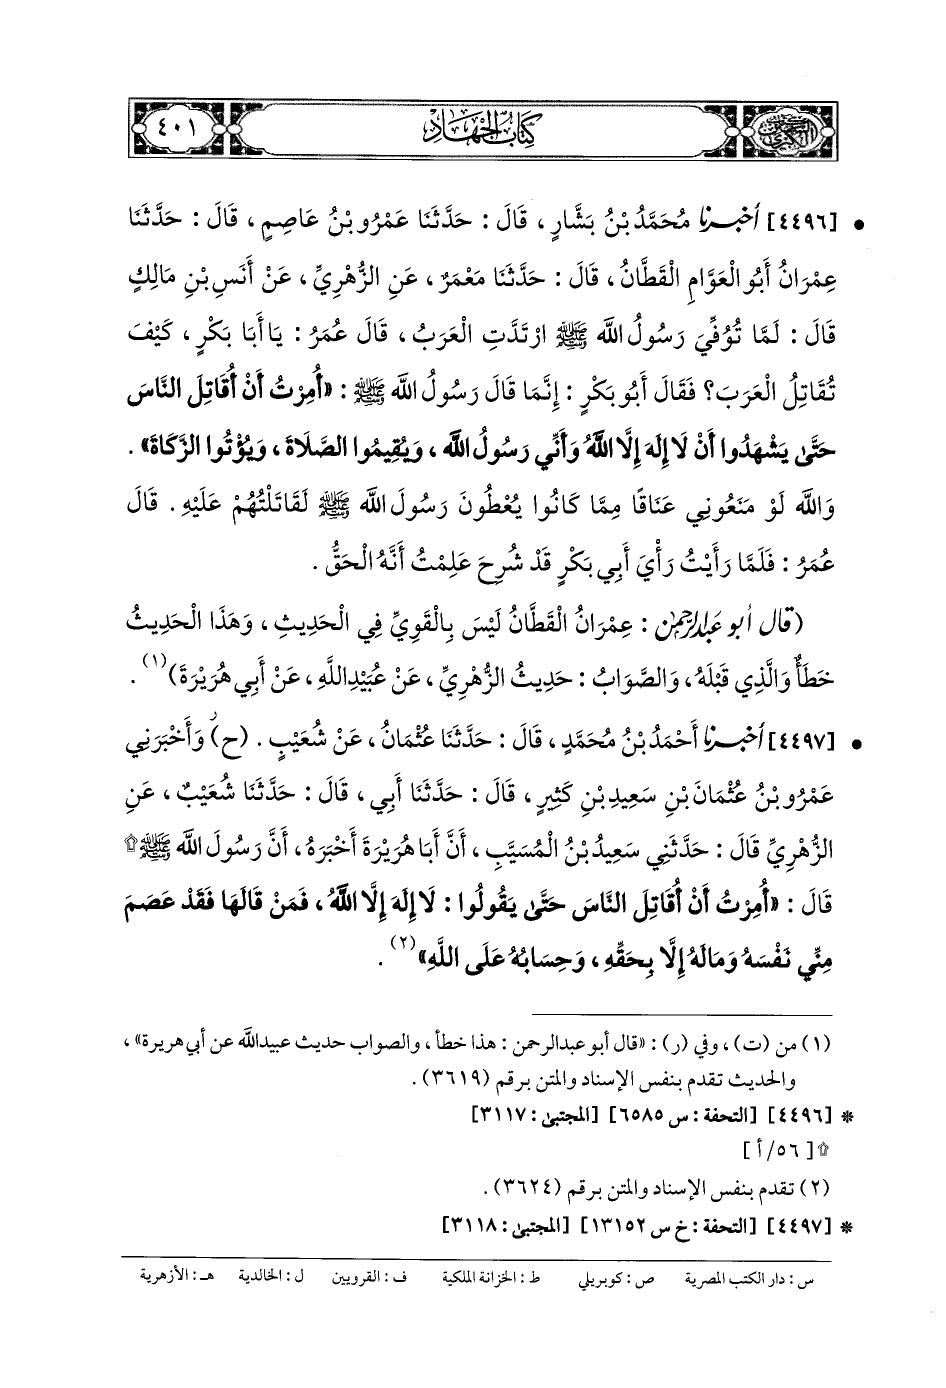 ٤٠١
كتاب الجهاد
السنن الكبرى
• [٤٤٩٦] أخبرنا مُحَمَّدُ بْنُ بَشَّارٍ ، قَالَ : حَدَّثَنَا عَمْرُو بْنُ عَاصِمٍ ، قَالَ : حَدَّثَنَا
عِمْرَانُ أَبُو الْعَوَّامِ الْقَطَّانُ ، قَالَ : حَدَّثَنَا مَعْمَرٌ ، عَنِ الزُّهْرِيِّ ، عَنْ أَنَسِ بْنِ مَالِكٍ
قَالَ : لَمَّا تُوُفِّيَ رَسُولُ اللَّه ﷺ ارْتَدَّتِ الْعَرَبُ ، قَالَ عُمَرُ : يَا أَبَا بَكْرٍ ، كَيْفَ
تُقَاتِلُ الْعَرَبَ؟ فَقَالَ أَبُو بَكْرٍ : إِنَّمَا قَالَ رَسُولُ اللَّه ﷺ : «أُمِرْتُ أَنْ أُقَاتِلَ النَّاسَ
حَتَّىٰ يَشْهَدُوا أَنْ لَا إِلَهَ إِلَّا اللَّهُ وَأَنِّي رَسُولُ اللَّه ، وَيُقِيمُوا الصَّلَاةَ ، وَيُؤْتُوا الزَّكَاةَ» .
وَاللَّه لَوْ مَنَعُونِي عَنَاقًا مِمَّا كَانُوا يُعْطُونَ رَسُولَ اللَّه ﷺ لَقَاتَلْتُهُمْ عَلَيْهِ . قَالَ
عُمَرُ : فَلَمَّا رَأَيْتُ رَأْيَ أَبِي بَكْرٍ قَدْ شُرِحَ عَلِمْتُ أَنَّهُ الْحَقُّ .
(قال أبو عبد الرحمن : عِمْرَانُ الْقَطَّانُ لَيْسَ بِالْقَوِيِّ فِي الْحَدِيثِ ، وَهَذَا الْحَدِيثُ
خَطَأٌ وَالَّذِي قَبْلَهُ ، وَالصَّوَابُ : حَدِيثُ الزُّهْرِيِّ ، عَنْ عُبَيْدِ اللَّهِ ، عَنْ أَبِي هُرَيْرَةَ)(١) .
• [٤٤٩٧] أخبرنا أَحْمَدُ بْنُ مُحَمَّدٍ ، قَالَ : حَدَّثَنَا عُثْمَانُ ، عَنْ شُعَيْبٍ . (ح) وَأَخْبَرَنِي
عَمْرُو بْنُ عُثْمَانَ بْنِ سَعِيدِ بْنِ كَثِيرٍ ، قَالَ : حَدَّثَنَا أَبِي ، قَالَ : حَدَّثَنَا شُعَيْبٌ ، عَنِ
الزُّهْرِيِّ قَالَ : حَدَّثَنِي سَعِيدُ بْنُ الْمُسَيَّبِ ، أَنَّ أَبَا هُرَيْرَةَ أَخْبَرَهُ ، أَنَّ رَسُولَ اللَّه ﷺ۩
قَالَ : «أُمِرْتُ أَنْ أُقَاتِلَ النَّاسَ حَتَّىٰ يَقُولُوا : لَا إِلَهَ إِلَّا اللَّهُ ، فَمَنْ قَالَهَا فَقَدْ عَصَمَ
مِنِّي نَفْسَهُ وَمَالَهُ إِلَّا بِحَقِّهِ ، وَحِسَابُهُ عَلَى اللَّهِ»(٢) .
(١) من (ت) ، وفي (ر) : «قال أبو عبدالرحمن : هذا خطأ ، والصواب حديث عبيداللَّه عن أبي هريرة» ،
والحديث تقدم بنفس الإسناد والمتن برقم (٣٦١٩) .
* [٤٤٩٦] [التحفة : س ٦٥٨٥] [المجتبى : ٣١١٧]
۩ [ ٥٦/ أ ]
(٢) تقدم بنفس الإسناد والمتن برقم (٣٦٢٤) .
* [٤٤٩٧] [التحفة : خ س ١٣١٥٢] [المجتبى : ٣١١٨]
س : دار الكتب المصرية ص : كوبريلي ط : الخزانة الملكية ف : القرويين ل : الخالدية هـ : الأزهرية